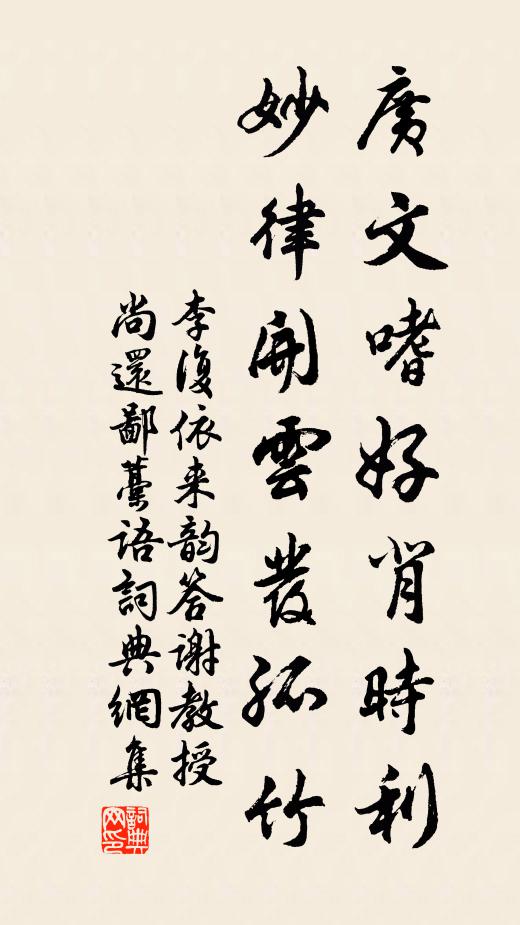 廣文嗜好背時利
妙律開雲發孤竹
李復依来韵答谢教授
尚還鄙藁語詞典網集
詞典网印